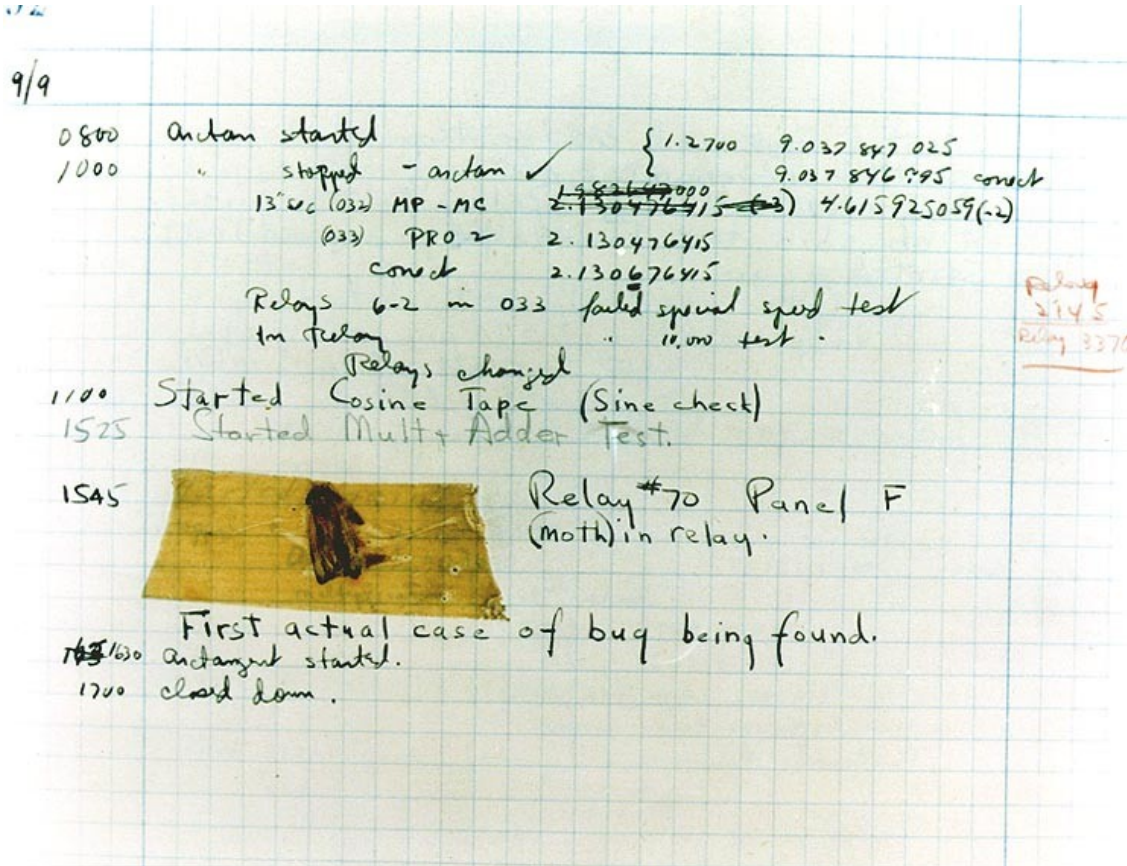 9/9
0800 antan started { 1.2700 9.037 847 025
1000 " stopped - antan ✓ 9.037 846 995 conect
13"uc (032) MP - MC 2.130476415 (-3) 4.615925059(-2)
(033) PRO 2 2.130476415
conect 2.130676415
Relays 6-2 in 033 failed special speed test
In " 10,000 test .
Relays changed
Relay
2145
Relay 3370
1100 Started Cosine Tape (Sine check)
1525 Started Mult + Adder Test.
1545 Relay #70 Panel F
(moth) in relay.
First actual case of bug being found.
1630 antangent started.
1700 closed down .